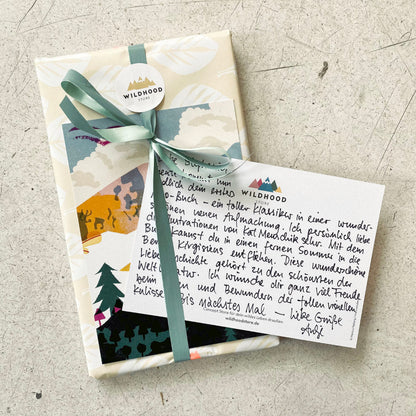 WILDHOOD
STORE
WILDHOOD
STORE
kommt nun
endlich dein erstes
-Buch - ein toller Klassiker in einer wunder-
schönen neuen Aufmachung. Ich persönlich liebe
die Illustrationen von Kat Menschik sehr. Mit dem
Buch kannst du in einen fernen Sommer in die
Berge Kirgisiens entfliehen. Diese wunderschöne
Liebesgeschichte gehört zu den schönsten der
Weltliteratur. Ich wünsche dir ganz viel Freude
beim und Bewundern der tollen visuellen
Kulisse. Bis nächstes Mal — Liebe Grüße
Concept Store für dein wildes Leben draußen.
wildhoodstore.de